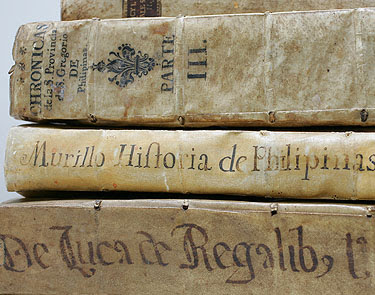 CHRONICAS
de la S. Provincia
de S. Gregorio
DE
Philipinas
PARTE
III.
Murillo Historia de Philipinas
De Luca de Regalib, t.ª